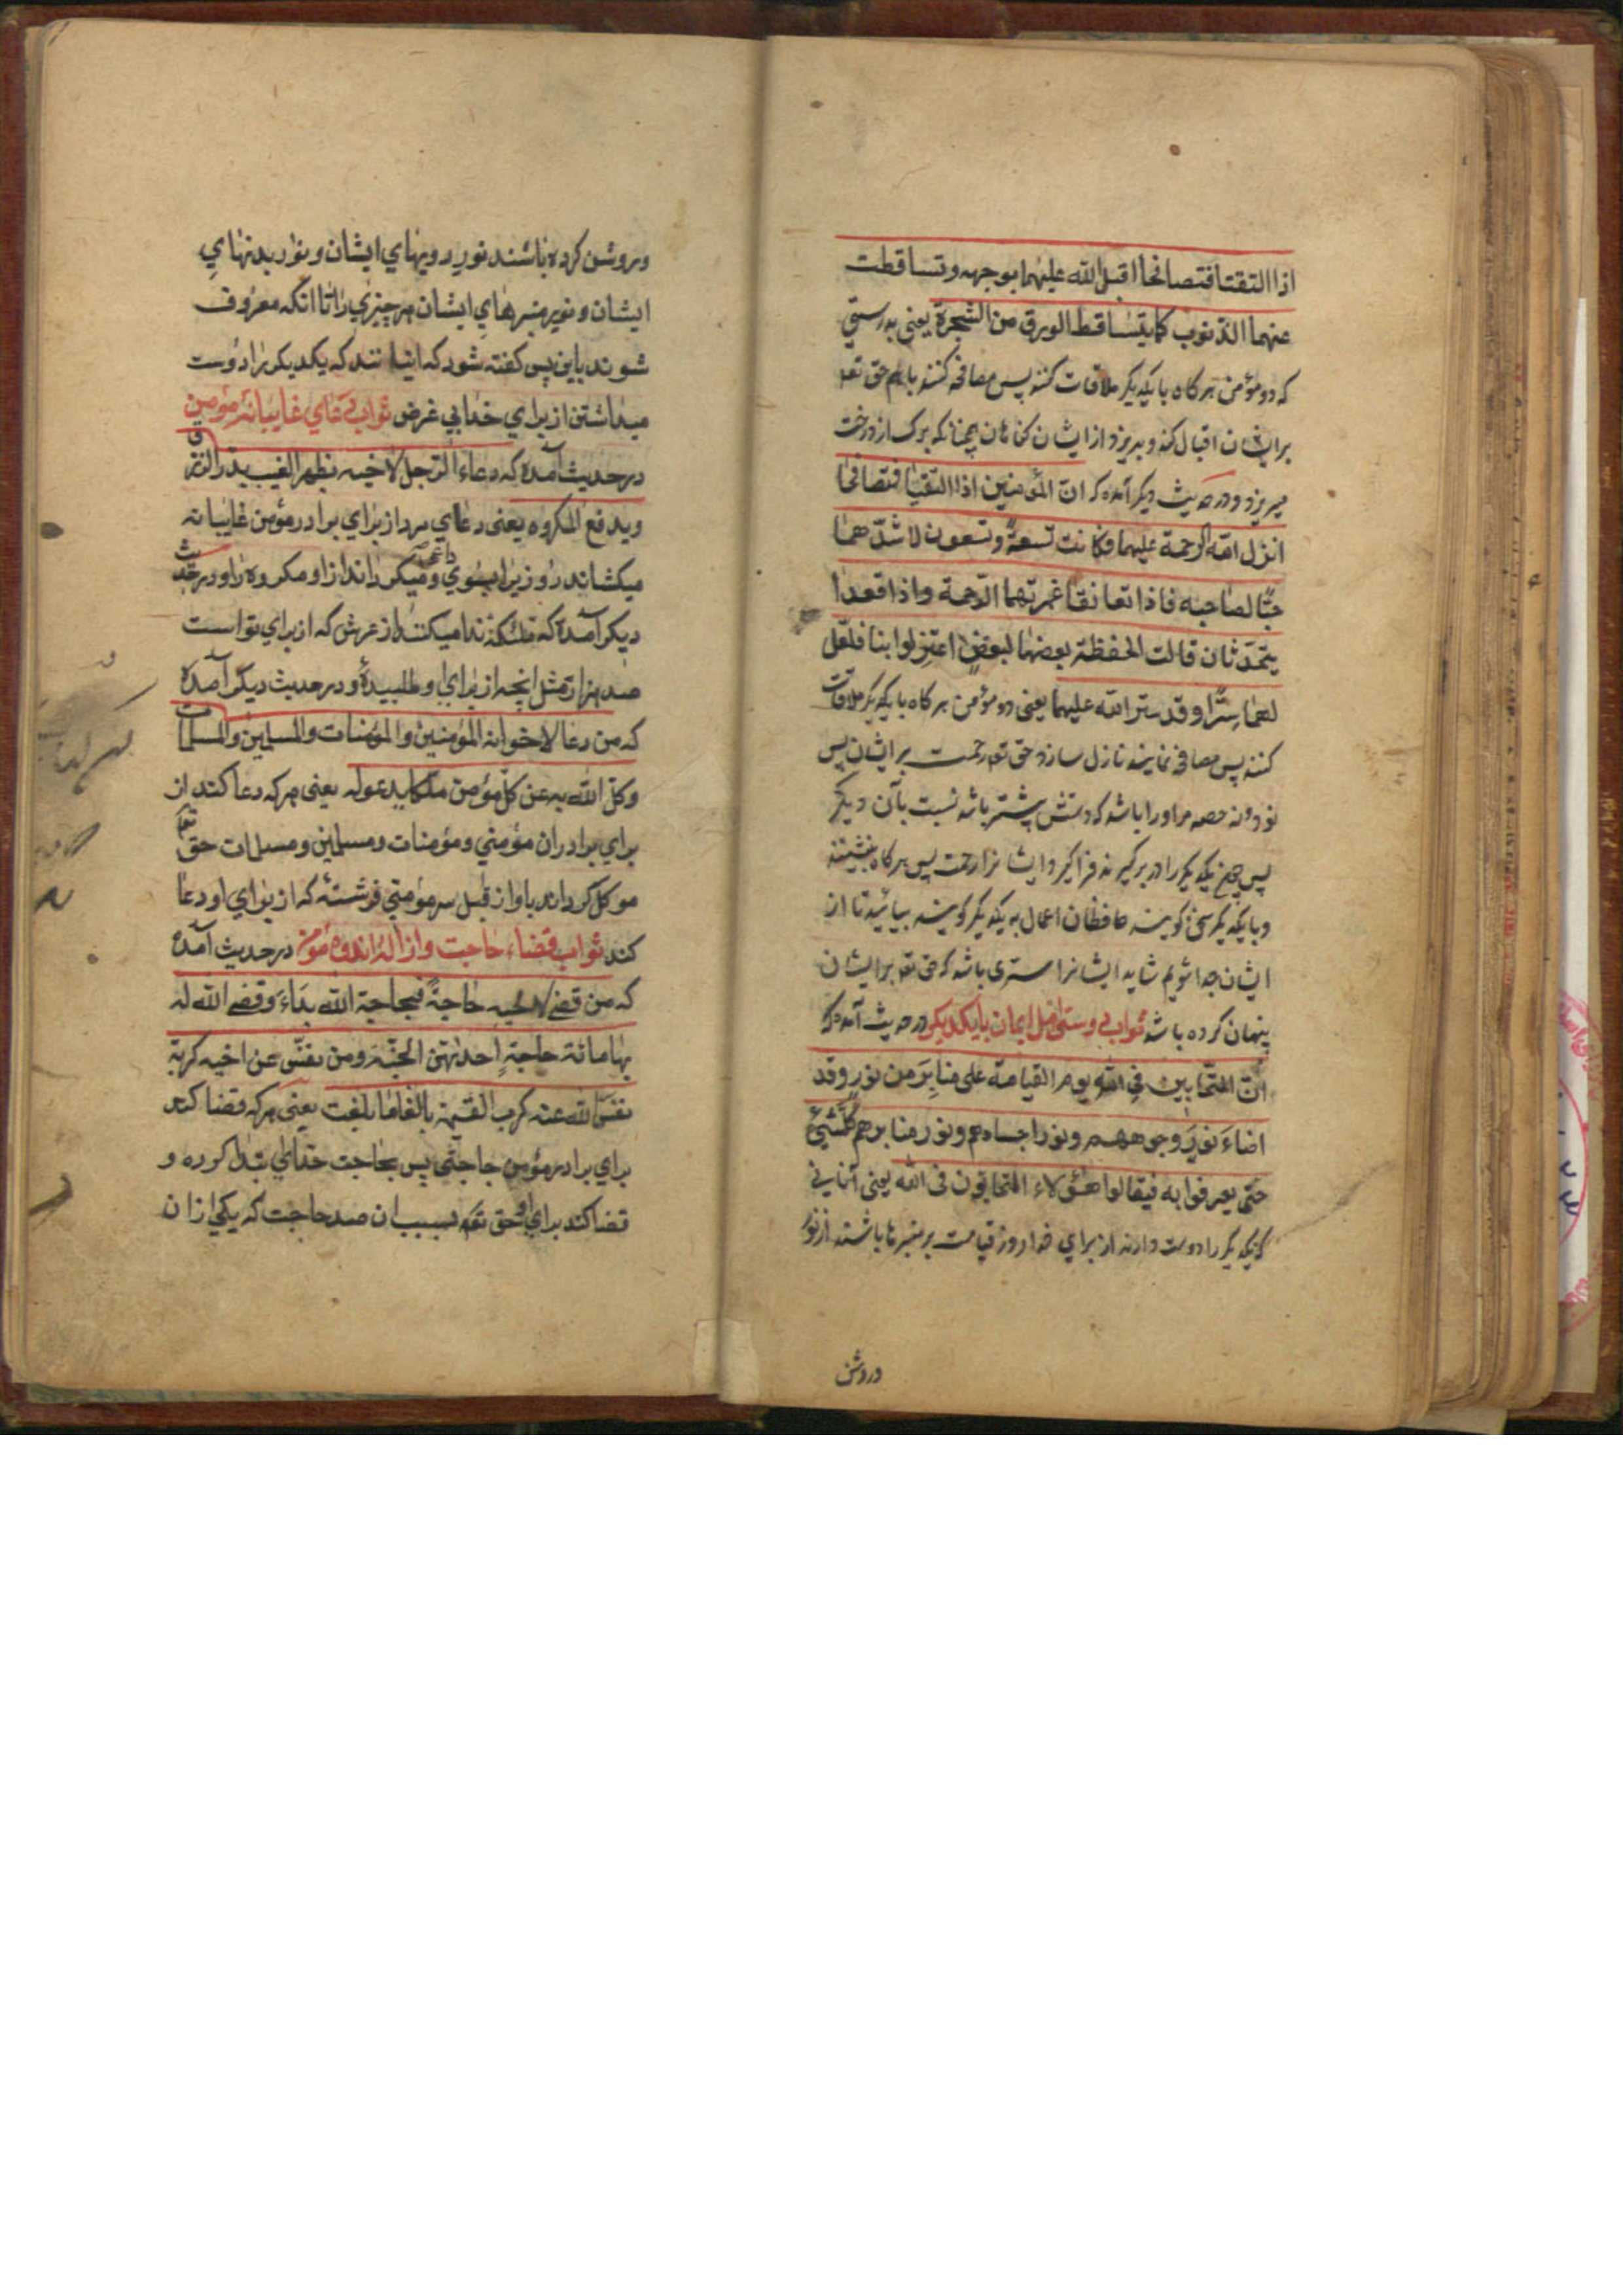 اذا التقتا فتصافحا اقبل الله عليهما بوجهه وتساقطت
عنهما الذنوب كما يتساقط الورق من الشجرة يعنى بدرستى
كه دو مؤمن هر كاه با يكديكر ملاقات كنند پس مصافحه كنند باهم حق تعه
بر ايشان اقبال كند و بريزد از ايشان كناهان همچنانكه برك از درخت
ميريزد و در حديث ديكر آمده كه انّ المؤمنين اذا التقيا فتصافحا
انزل الله الرحمة عليهما فكانت تسعةً وتسعون لاشدّهما
حبّا لصاحبه فاذا تعانقا غمرتهما الرّحمة واذا قعدا
يتحدّثان قالت الحفظة بعضها لبعضٍ اعتزلوا بنا فلعلّ
لهما سِتْرًا وقد ستر الله عليهما يعنى دو مؤمن هر كاه با يكديكر ملاقات
كنند پس مصافحه نمايند نازل سازد حق تعه رحمت بر ايشان پس
نود و نه حصه مر او را باشد كه دوستيش بيشتر باشد نسبت بآن ديكر
پس چون يكديكر را در بر كيرند فرا كيرد ايشانرا رحمت پس هر كاه بنشينند
و با يكديكر سخن كويند حافظان اعمال به يكديكر كويند بيائيد تا از
ايشان جدا شويم شايد ايشانرا سترى باشد كه حق تعه بر ايشان
پنهان كرده باشد ثواب دوستى اهل ايمان با يكديكر در حديث آمده كه
انّ المتحابين فى الله يوم القيامة على منابر من نور وقد
اضاء نور وجوههم ونور اجسادهم ونور منابرهم كلّ شيئ
حتّى يعرفوا به فيقال هؤلاء المتحابون فى الله يعنى آنانى
كه يكديكر را دوست دارند از براى خدا روز قيامت بر منبرها باشند از نور
وروشن
وروشن كرده باشند نور رويهاي ايشان و نور بدنهاي
ايشان و نور منبرهاي ايشان هر چيزي را تا آنكه معروف
شوند باين پس كفته شود كه اينانند كه يكديكر را دوست
ميداشتن از براي خدا بي غرض ثواب دعاي غايبانهٔ مؤمن
در حديث آمده كه دعاء الرّجل لاخيه بظهر الغيب يدر الرزق
ويدفع المكروه يعنى دعاي مرد از براي برادر مؤمن غايبانه
ميكشاند روزيرا بسوي داعي و ميكرداند از او مكروه را و در حديث
ديكر آمده كه ملئكه ندا ميكنند از عرش كه از براي تو است
صد هزار مثل آنچه از براي او طلبيدهٔ و در حديث ديكر آمده
كه من دعا لاخوانه المؤمنين والمؤمنات والمسلمين والمسلمات
وكّل الله به عن كلّ مؤمن ملكا يدعو له يعنى هر كه دعا كند از
براي برادران مؤمني و مؤمنات و مسلمين و مسلمات حق تعا
موكل كرداند باو از قبل هر مؤمني فرشتهٔ كه از براي او دعا
كند ثواب قضاء حاجت و ازالهٔ اندوه مؤمن در حديث آمده
كه من قضى لاخيه حاجةً فبحاجة الله بداء وقضى الله له
بها مائة حاجةٍ احدٰيهنّ الجنّة ومن نفّس عن اخيه كربة
نفّس الله عنه كرب القيمة بالغاما بلغت يعنى هر كه قضا كند
براي برادر مؤمن حاجتى پس بحاجت خداي ابتدا كرده و
قضا كند براي او حق تعه بسبب ان صد حاجت كه يكي از ان